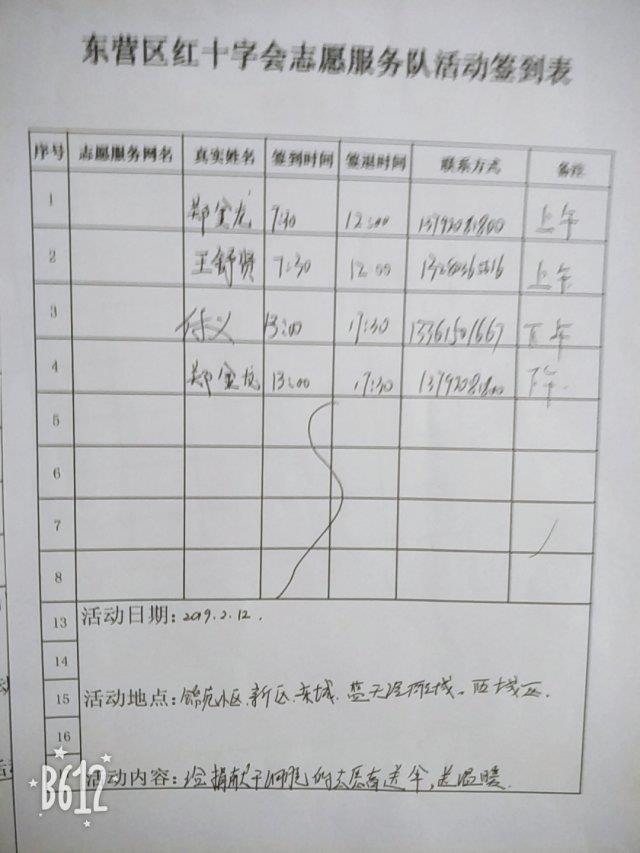 东营区红十字会志愿服务队活动签到表
序号 志愿服务网名 真实姓名 签到时间 签退时间 联系方式 备注
1 郑宝龙 7:30 12:00 13792081800 上午
2 王舒贤 7:30 12:00 上午
3 13:00 17:30 13361501667 下午
4 郑宝龙 13:00 17:30 13792081800 下午
5
6
7
8
13 活动日期: 2019.2.12.
14
15 活动地点: 小区.新区.东城. 蓝天 城.西城区
16
活动内容: 给捐献干细胞的 送 ,送温暖.
B612